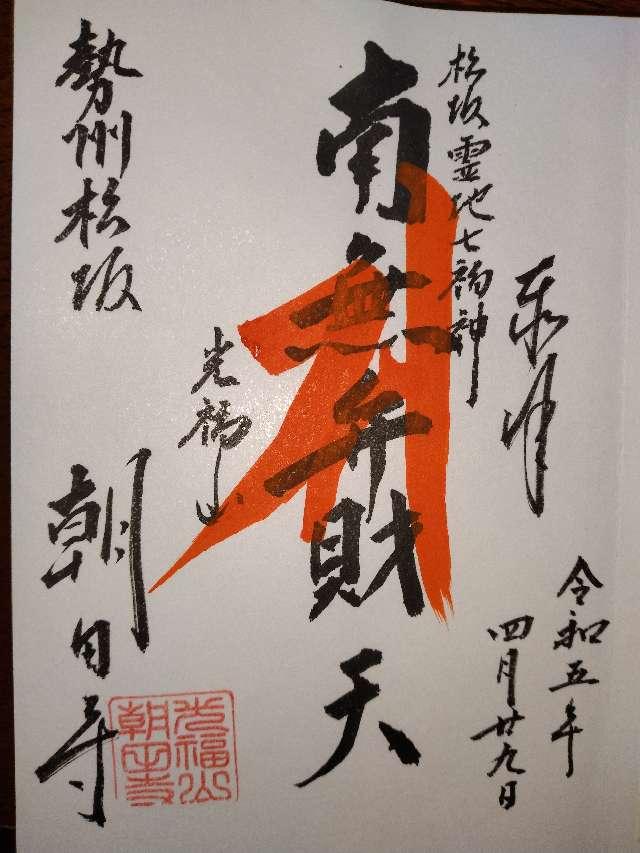 奉拝
令和五年
四月廿九日
松阪霊地七福神
南無弁財天
光福山
勢州松阪
朝田寺
光福山
朝田寺